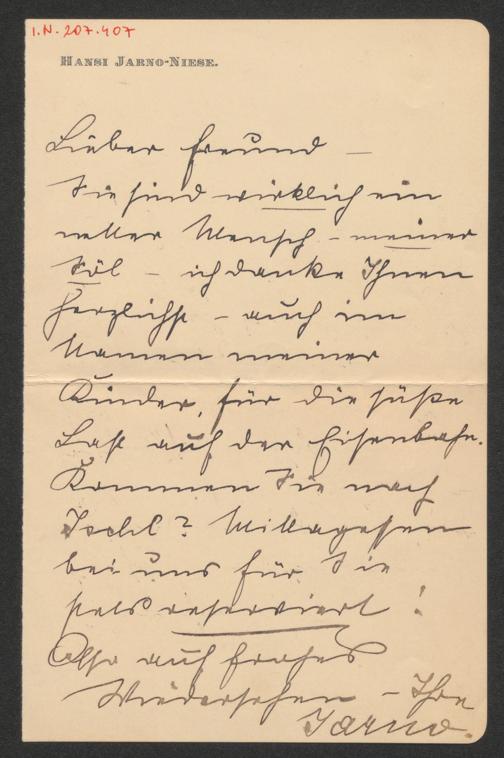 I.N. 207.407
HANSI JARNO-NIESE.
Lieber Freund –
Sie sind wirklich ein
netter Mensch – meiner
Söl – ich danke Ihnen
herzlichst – auch im
Namen meiner
Kinder, für die süße
Last auf der Eisenbahn.
Kommen Sie nach
Ischl? Mittagessen
bei uns für Sie
stets reserviert!
Also auf frohes
Wiedersehen – Ihre
Jarno.